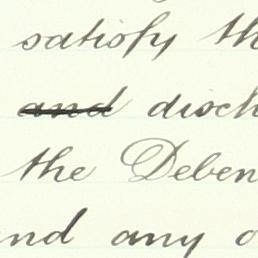 satisfy th
and disch
the Deben
nd any o